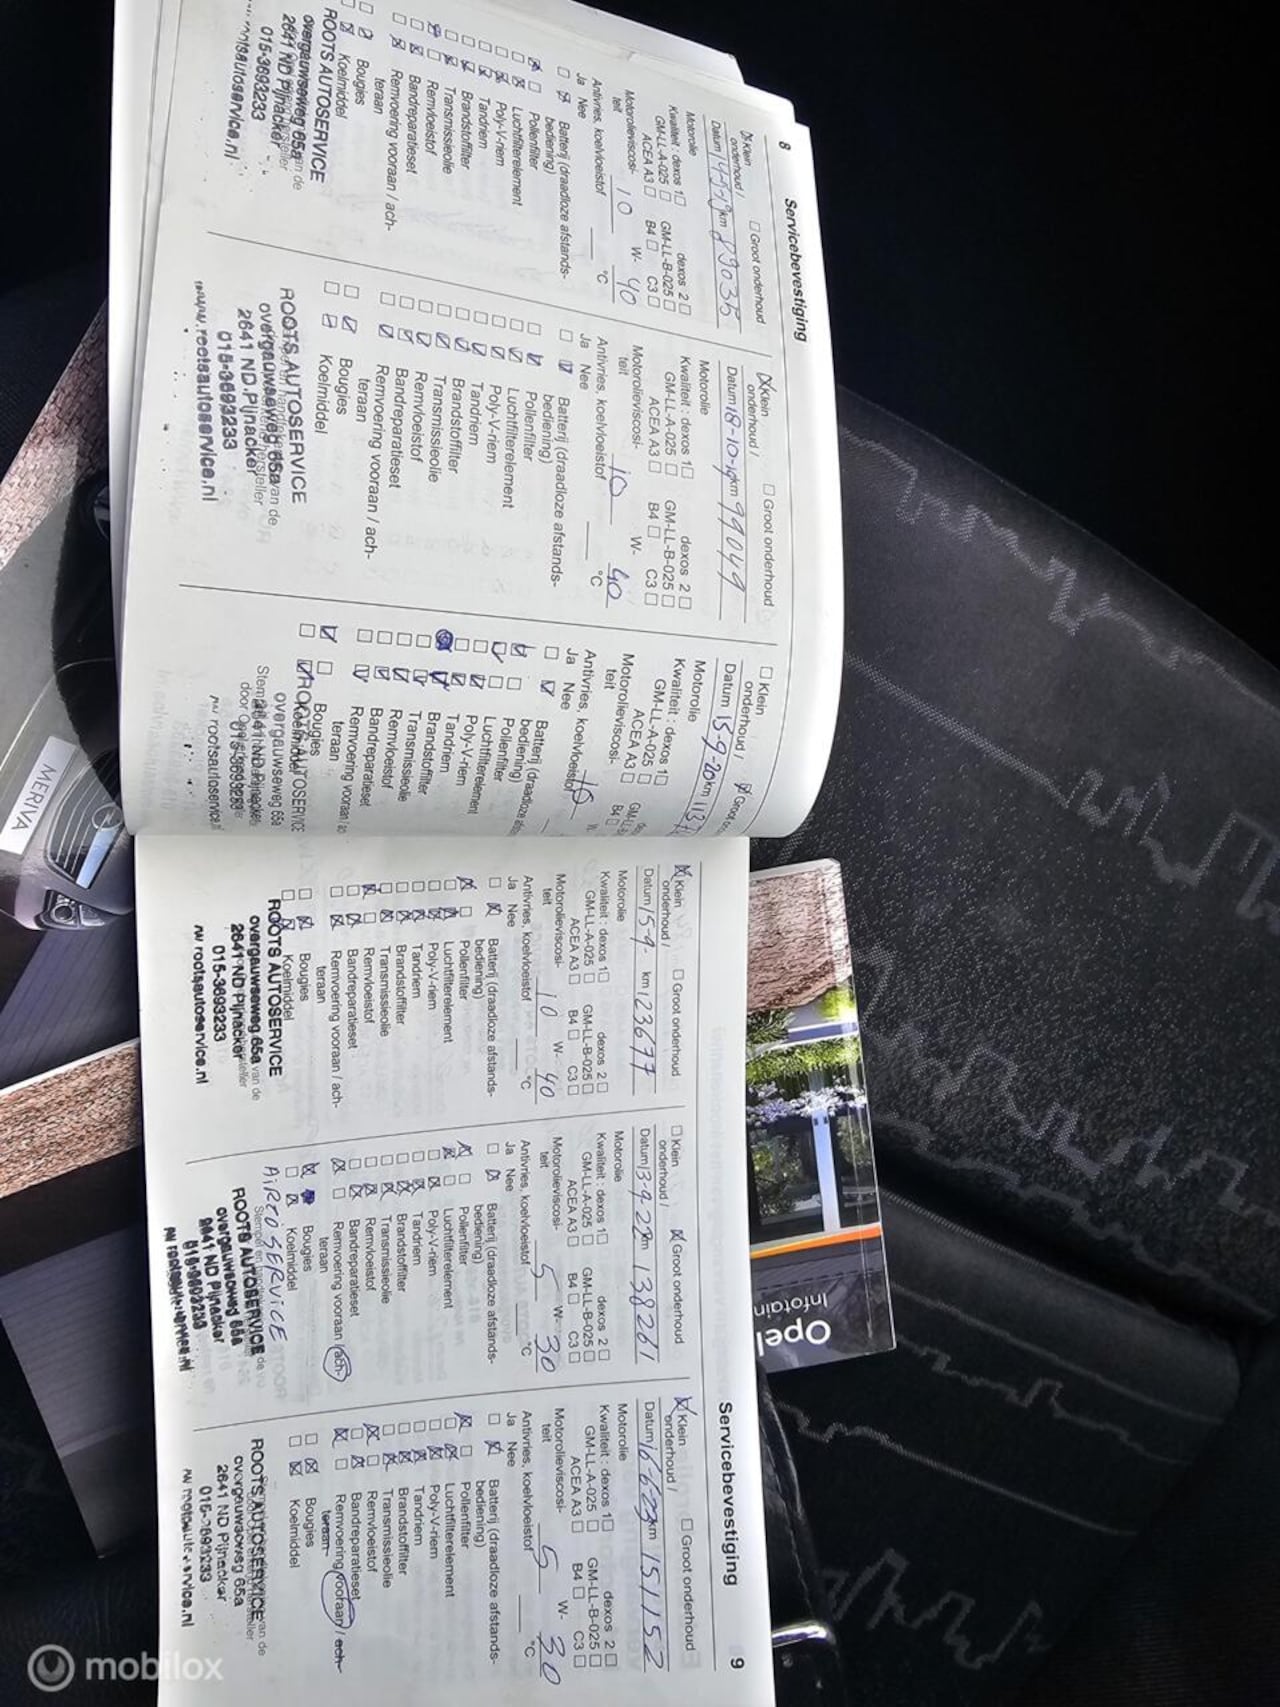 8 Servicebevestiging
Klein onderhoud / Groot onderhoud
Datum km 89036
Motorolie
Kwaliteit : dexos 1 dexos 2
GM-LL-A-025 GM-LL-B-025
ACEA A3 B4 C3
Motorolieviscosi-
teit 10 W- 40
Antivries, koelvloeistof °C
Ja Nee
Batterij (draadloze afstands-
bediening)
Pollenfilter
Luchtfilterelement
Poly-V-riem
Tandriem
Brandstoffilter
Transmissieolie
Remvloeistof
Bandreparatieset
Remvoering vooraan / ach-
teraan
Bougies
Koelmiddel
ROOTS AUTOSERVICE
overgauwseweg 65a
2641 ND Pijnacker
015-3693233
www.rootsautoservice.nl
Klein onderhoud / Groot onderhoud
Datum 18-10-19 km 99049
Motorolie
Kwaliteit : dexos 1 dexos 2
GM-LL-A-025 GM-LL-B-025
ACEA A3 B4 C3
Motorolieviscosi-
teit 10 W- 40
Antivries, koelvloeistof °C
Ja Nee
Batterij (draadloze afstands-
bediening)
Pollenfilter
Luchtfilterelement
Poly-V-riem
Tandriem
Brandstoffilter
Transmissieolie
Remvloeistof
Bandreparatieset
Remvoering vooraan / ach-
teraan
Bougies
Koelmiddel
ROOTS AUTOSERVICE
overgauwseweg 65a
2641 ND Pijnacker
015-3693233
www.rootsautoservice.nl
Klein
onderhoud /
Datum 15-9-20 km
Motorolie
Kwaliteit : dexos 1
GM-LL-A-025
ACEA A3 B4
Motorolieviscosi-
teit 10
Antivries, koelvloeistof
Ja Nee
Batterij (draadloze
bediening)
Pollenfilter
Luchtfilterelement
Poly-V-riem
Tandriem
Brandstoffilter
Transmissieolie
Remvloeistof
Bandreparatieset
Remvoering vooraan /
teraan
Bougies
Koelmiddel
ROOTS AUTOSERVICE
overgauwseweg 65a
2641 ND Pijnacker
015-3693233
rootsautoservice
Klein onderhoud / Groot onderhoud
Datum 15-9- km 123677
Motorolie
Kwaliteit : dexos 1 dexos 2
GM-LL-A-025 GM-LL-B-025
ACEA A3 B4 C3
Motorolieviscosi-
teit 10 W- 40
Antivries, koelvloeistof °C
Ja Nee
Batterij (draadloze afstands-
bediening)
Pollenfilter
Luchtfilterelement
Poly-V-riem
Tandriem
Brandstoffilter
Transmissieolie
Remvloeistof
Bandreparatieset
Remvoering vooraan / ach-
teraan
Bougies
Koelmiddel
ROOTS AUTOSERVICE
overgauwseweg 65a
2641 ND Pijnacker
015-3693233
rootsautoservice.nl
Klein onderhoud / Groot onderhoud
Datum 13-9-22 km 138261
Motorolie
Kwaliteit : dexos 1 dexos 2
GM-LL-A-025 GM-LL-B-025
ACEA A3 B4 C3
Motorolieviscosi-
teit 5 W- 30
Antivries, koelvloeistof °C
Ja Nee
Batterij (draadloze afstands-
bediening)
Pollenfilter
Luchtfilterelement
Poly-V-riem
Tandriem
Brandstoffilter
Transmissieolie
Remvloeistof
Bandreparatieset
Remvoering vooraan / ach-
teraan
Bougies
Koelmiddel
AIRCO SERVICE
ROOTS AUTOSERVICE
overgauwseweg 65a
2641 ND Pijnacker
015-3693233
Servicebevestiging 9
Klein onderhoud / Groot onderhoud
Datum 16-6-23 km 151152
Motorolie
Kwaliteit : dexos 1 dexos 2
GM-LL-A-025 GM-LL-B-025
ACEA A3 B4 C3
Motorolieviscosi-
teit 5 W- 30
Antivries, koelvloeistof °C
Ja Nee
Batterij (draadloze afstands-
bediening)
Pollenfilter
Luchtfilterelement
Poly-V-riem
Tandriem
Brandstoffilter
Transmissieolie
Remvloeistof
Bandreparatieset
Remvoering vooraan / ach-
teraan
Bougies
Koelmiddel
ROOTS AUTOSERVICE
overgauwseweg 65a
2641 ND Pijnacker
015-3693233
MERIVA
Opel
Infotain
mobilox